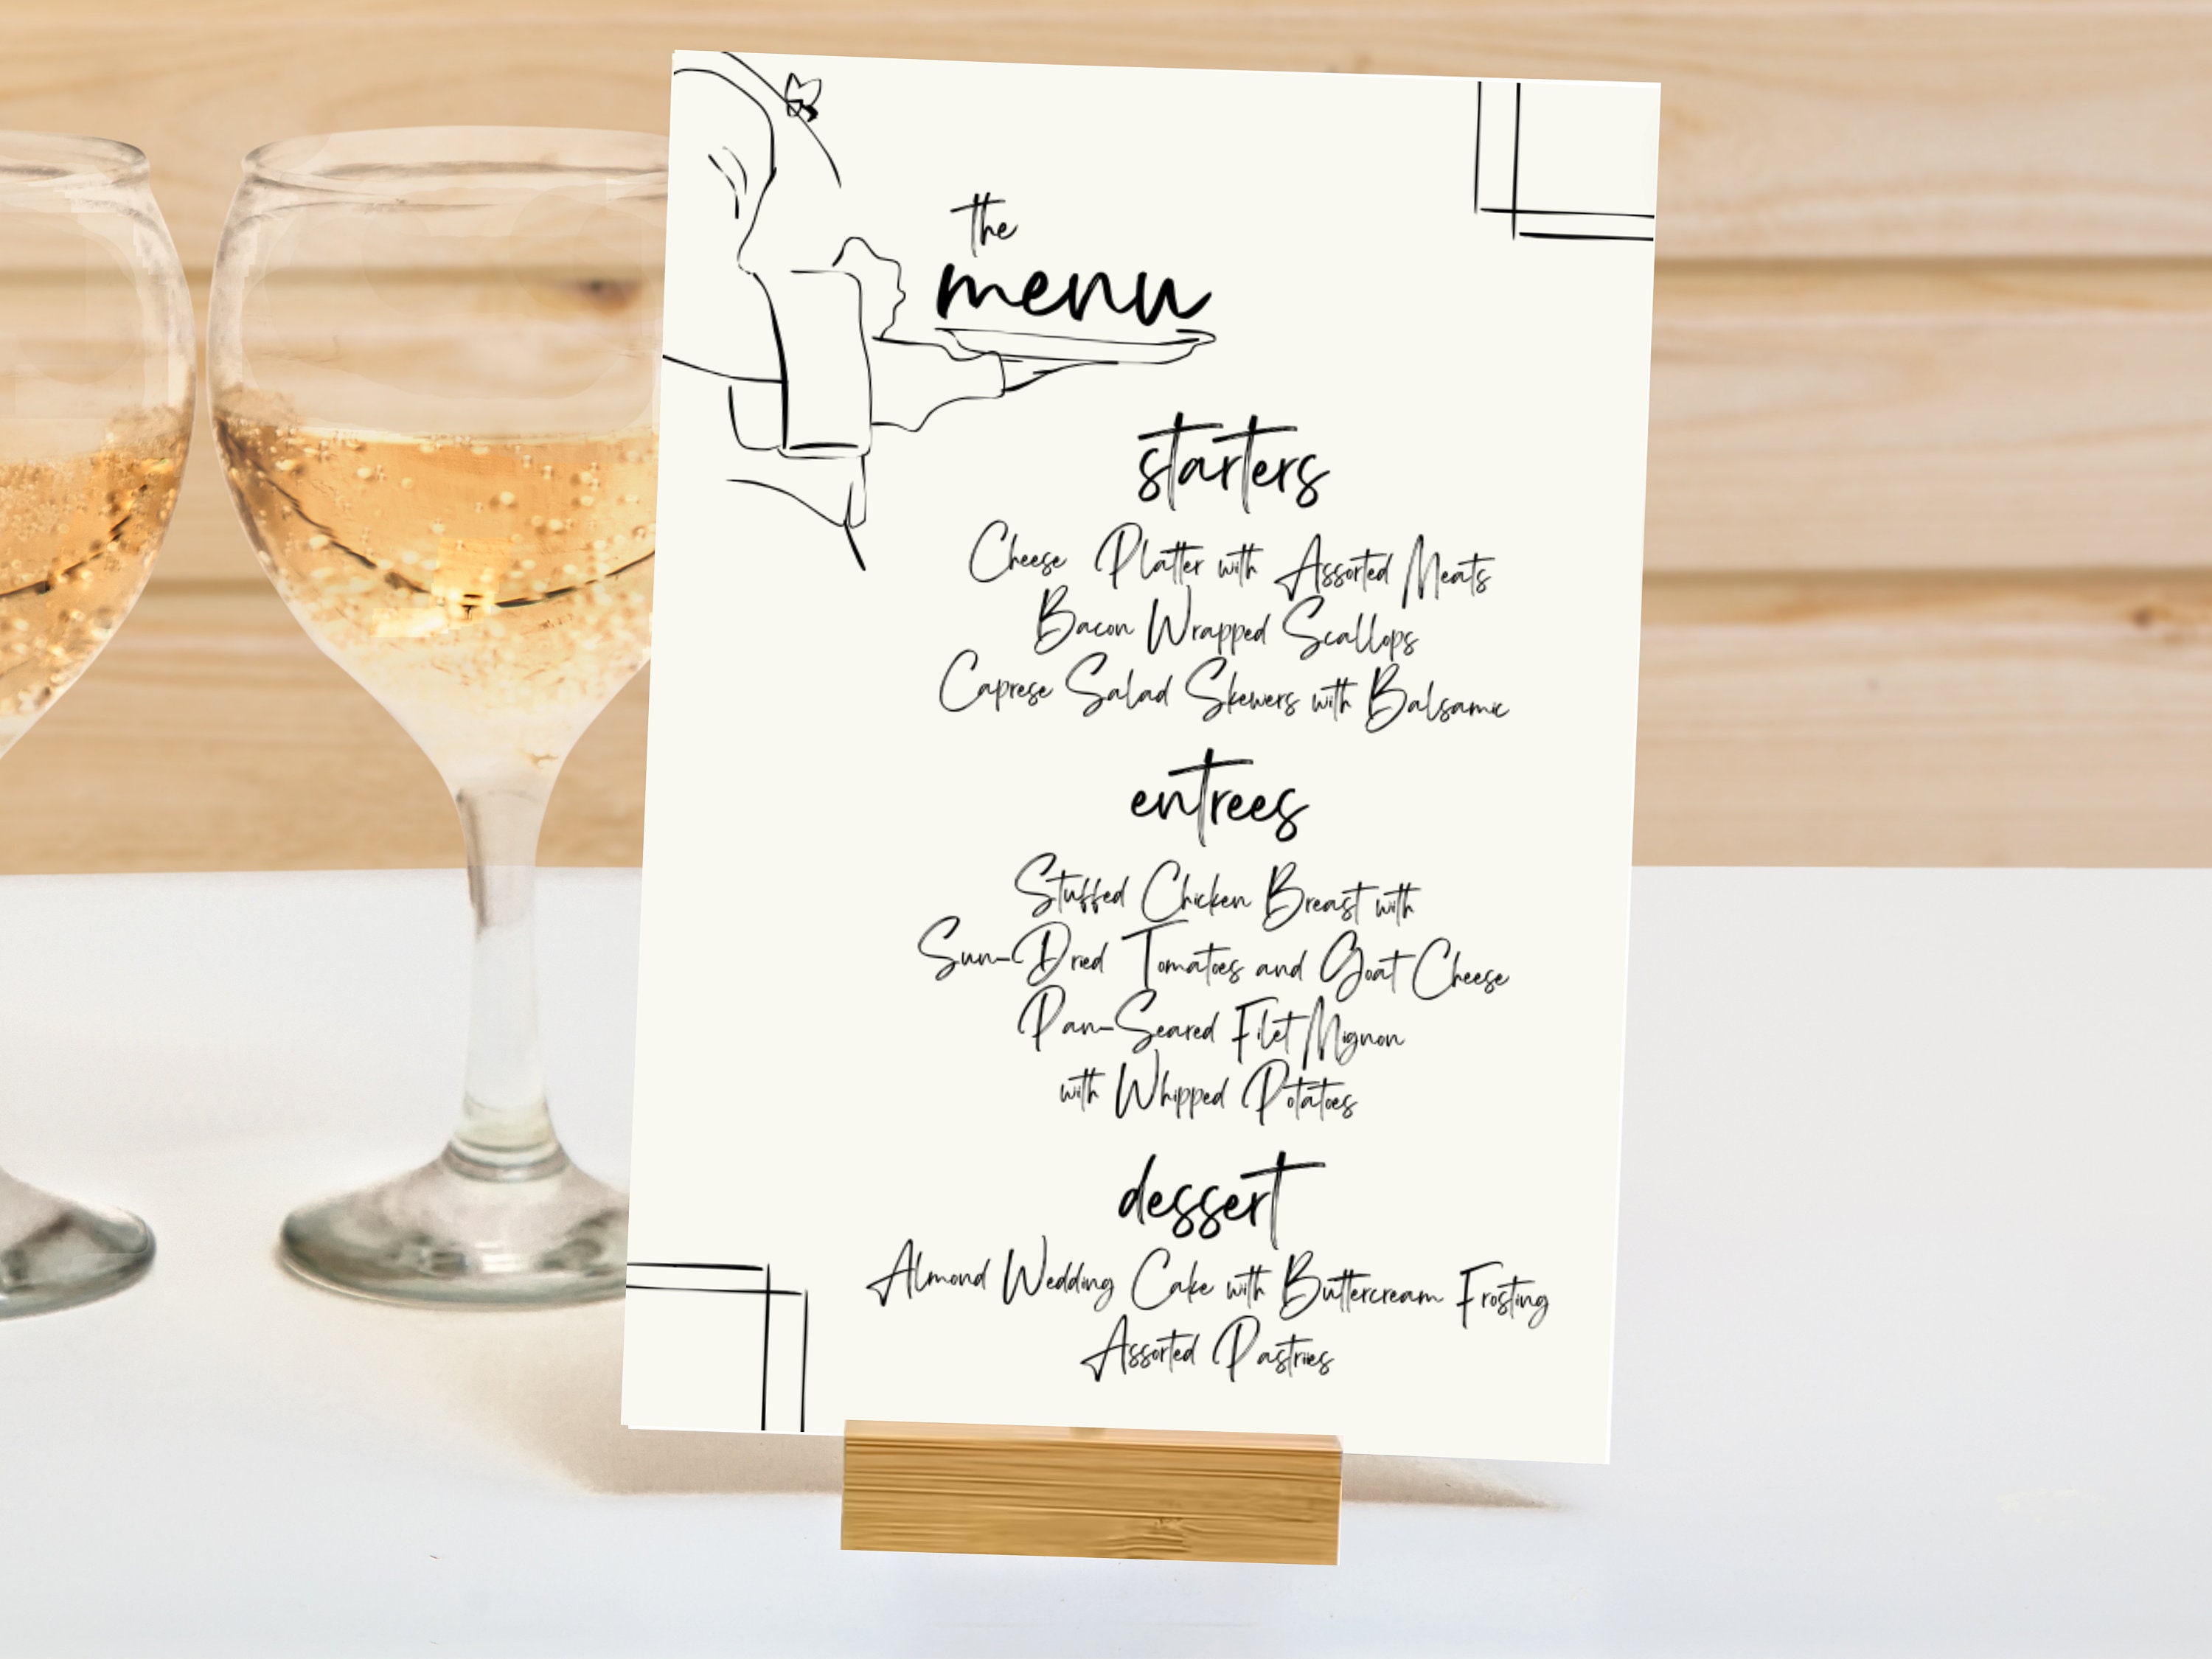 the
menu
starters
Cheese Platter with Assorted Meats
Bacon Wrapped Scallops
Caprese Salad Skewers with Balsamic
entrees
Stuffed Chicken Breast with
Sun-Dried Tomatoes and Goat Cheese
Pan-Seared Filet Mignon
with Whipped Potatoes
dessert
Almond Wedding Cake with Buttercream Frosting
Assorted Pastries